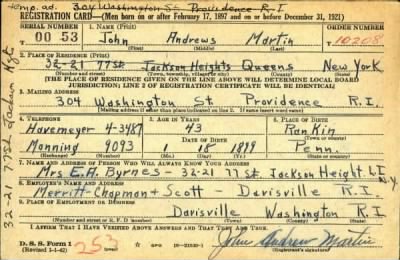 Temp. ad. 304 Washington St Providence R.I
REGISTRATION CARD—(Men born on or after February 17, 1897 and on or before December 31, 1921)
SERIAL NUMBER 1. NAME (Print) ORDER NUMBER
00 53 John Andrews Martin 10208
(First) (Middle) (Last)
2. PLACE OF RESIDENCE (Print)
32-21 77 St. Jackson Heights Queens New York
(Number and street) (Town, township, village, or city) (County) (State)
[THE PLACE OF RESIDENCE GIVEN ON THE LINE ABOVE WILL DETERMINE LOCAL BOARD
JURISDICTION; LINE 2 OF REGISTRATION CERTIFICATE WILL BE IDENTICAL]
3. MAILING ADDRESS
304 Washington St Providence R.I.
4. TELEPHONE 5. AGE IN YEARS 6. PLACE OF BIRTH
Havemeyer 4-3487 43 Rankin
DATE OF BIRTH (Town or county)
Manning 9093 1 18 1899 Penn.
(Exchange) (Number) (Mo.) (Day) (Yr.) (State or country)
7. NAME AND ADDRESS OF PERSON WHO WILL ALWAYS KNOW YOUR ADDRESS
Mrs E.A. Byrnes - 32-21 77 St. Jackson Height L.I. N.Y.
8. EMPLOYER'S NAME AND ADDRESS
Merritt-Chapman + Scott - Davisville R.I.
9. PLACE OF EMPLOYMENT OR BUSINESS
Davisville Washington R.I.
(Number and street or R. F. D. number) (Town) (County) (State)
I AFFIRM THAT I HAVE VERIFIED ABOVE ANSWERS AND THAT THEY ARE TRUE.
D. S. S. Form 1
(Revised 1-1-42) 253 John Andrew Martin
(Registrant's signature)
32-21 77 St Jackson Hgts